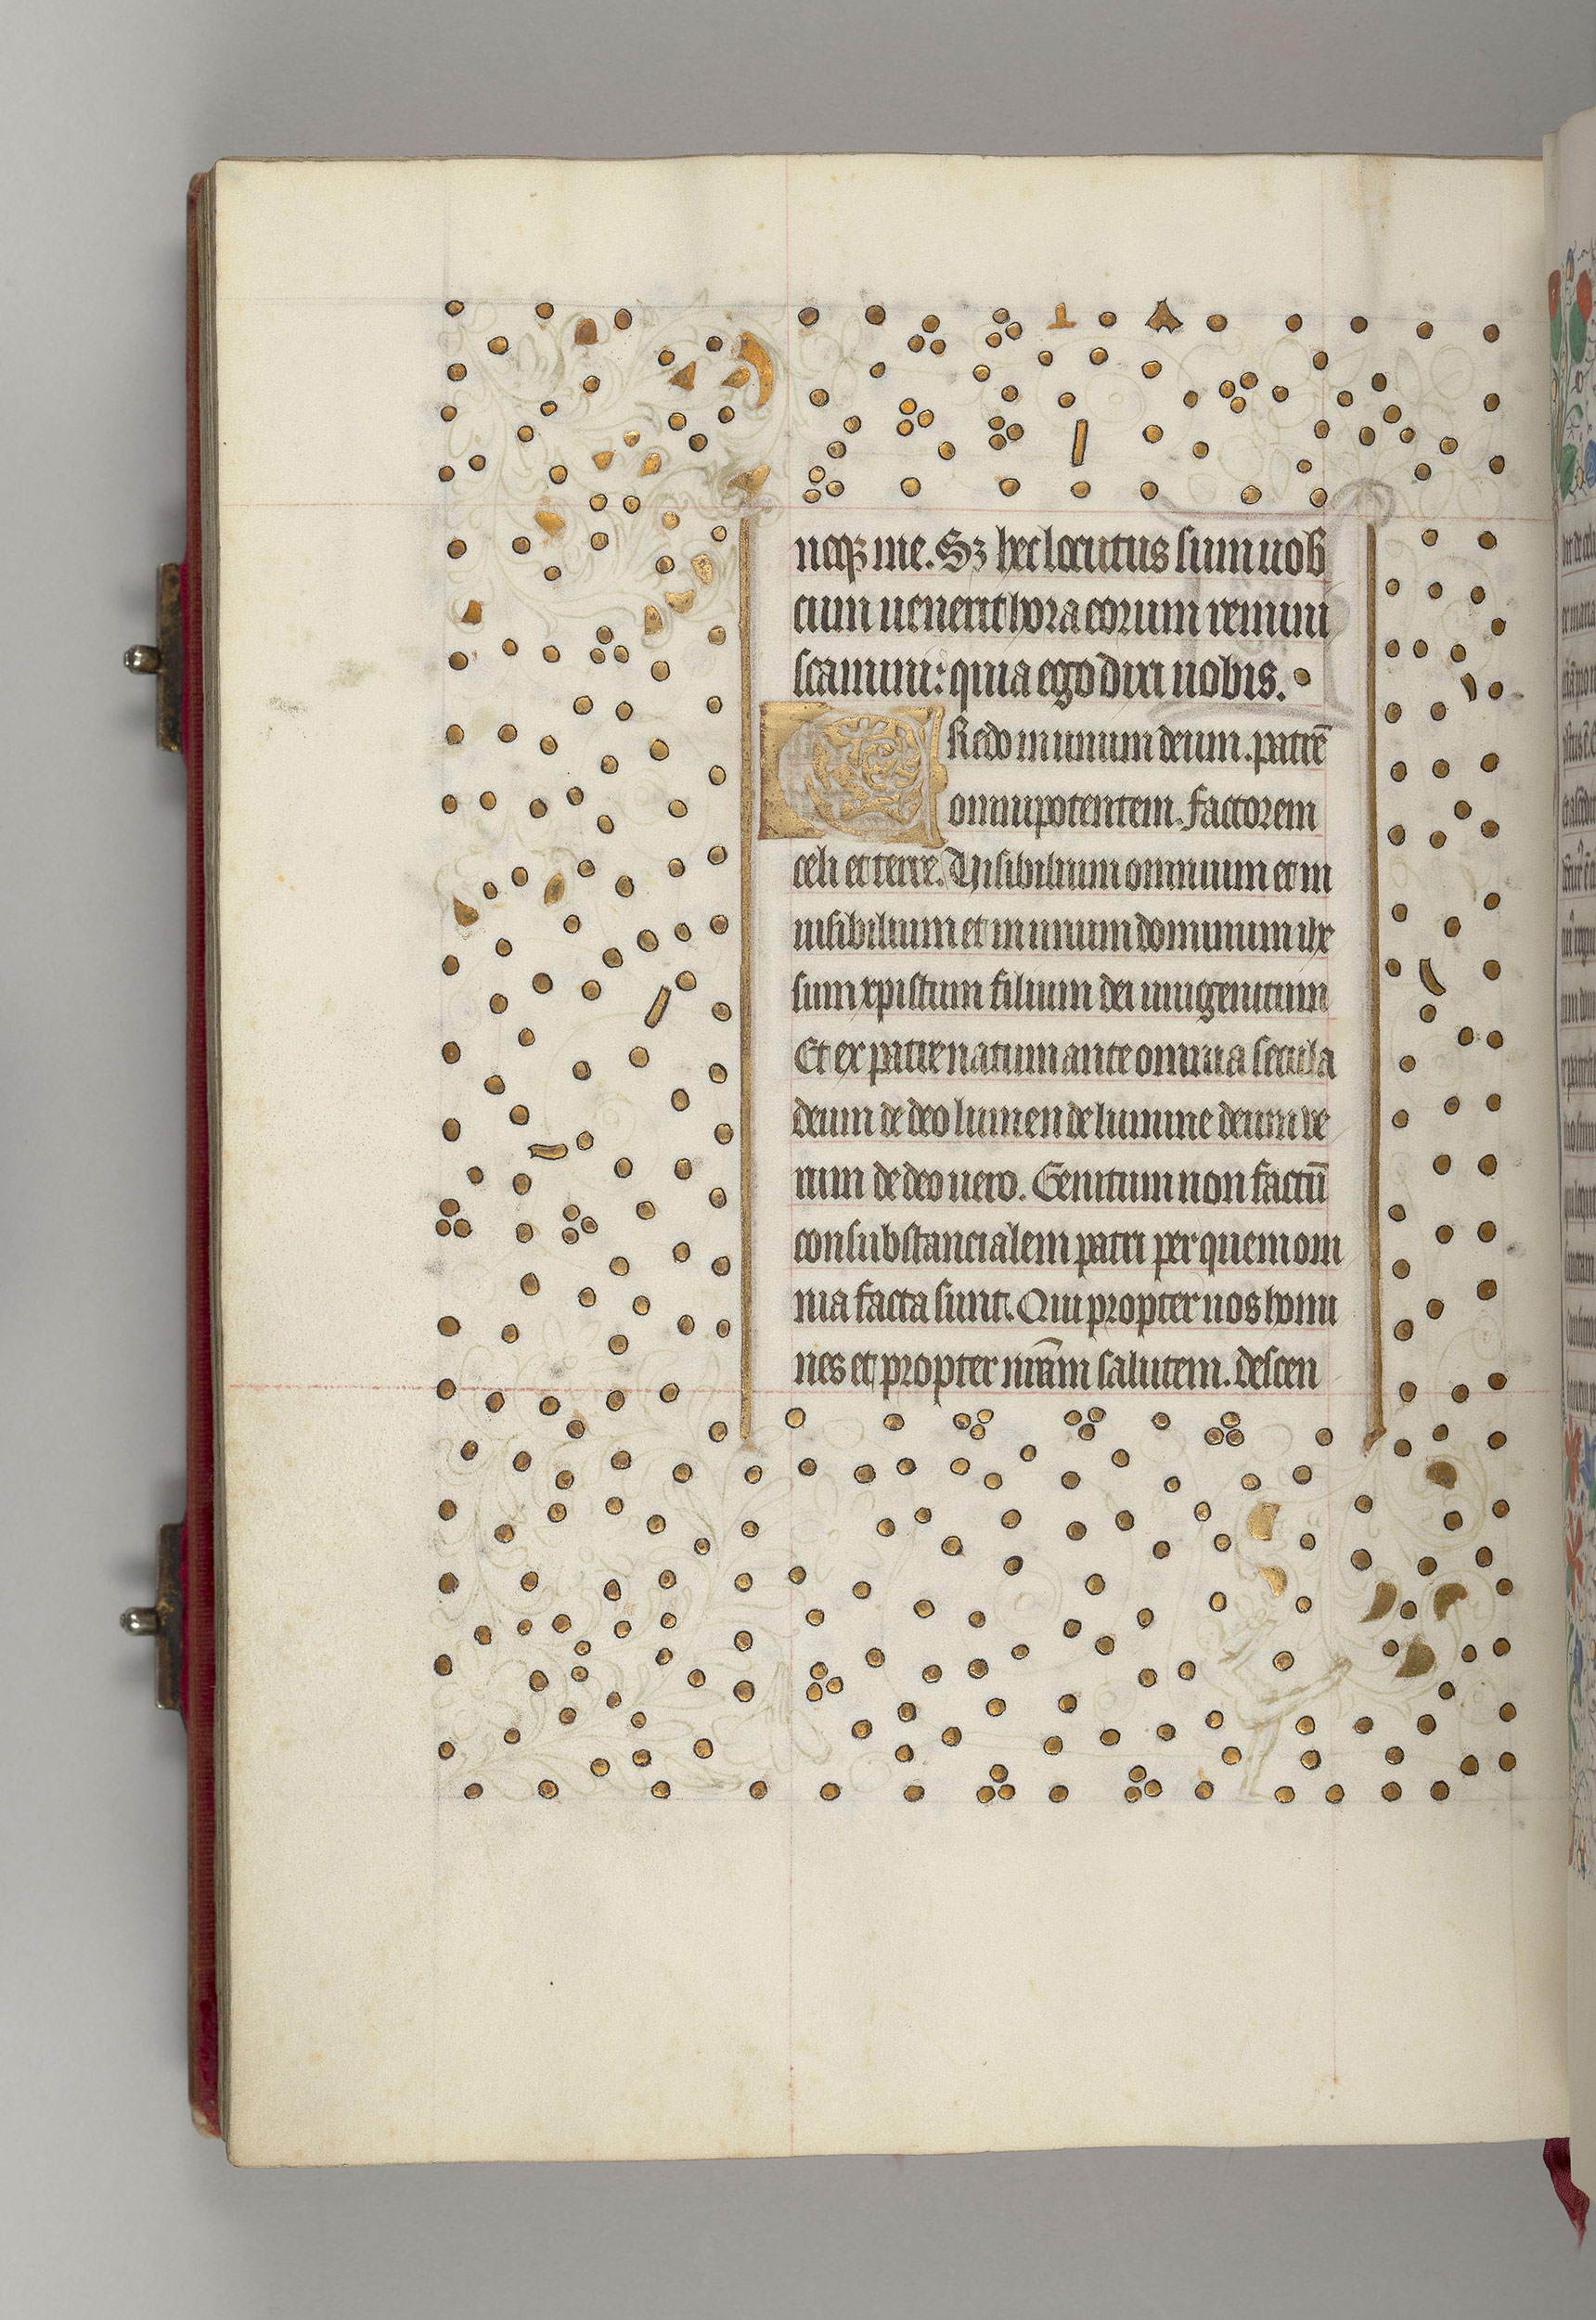 neqꝫ me. Sꝫ hec locutus sum uob
cum uenerit hora eorum remini
scamini: quia ego dixi uobis.
CRedo in unum deum. patrē
omnipotentem. factorem
celi et terre. Uisibilium omnium et in
uisibilium et in unum dominum ihe
sum xpistum filium dei unigenitum
Et ex patre natum ante omnia secula
deum de deo lumen de lumine deum ue
rum de deo uero. Genitum non factū
consubstancialem patri per quem om
nia facta sunt. Qui propter nos homi
nes et propter nr̄am salutem. descen